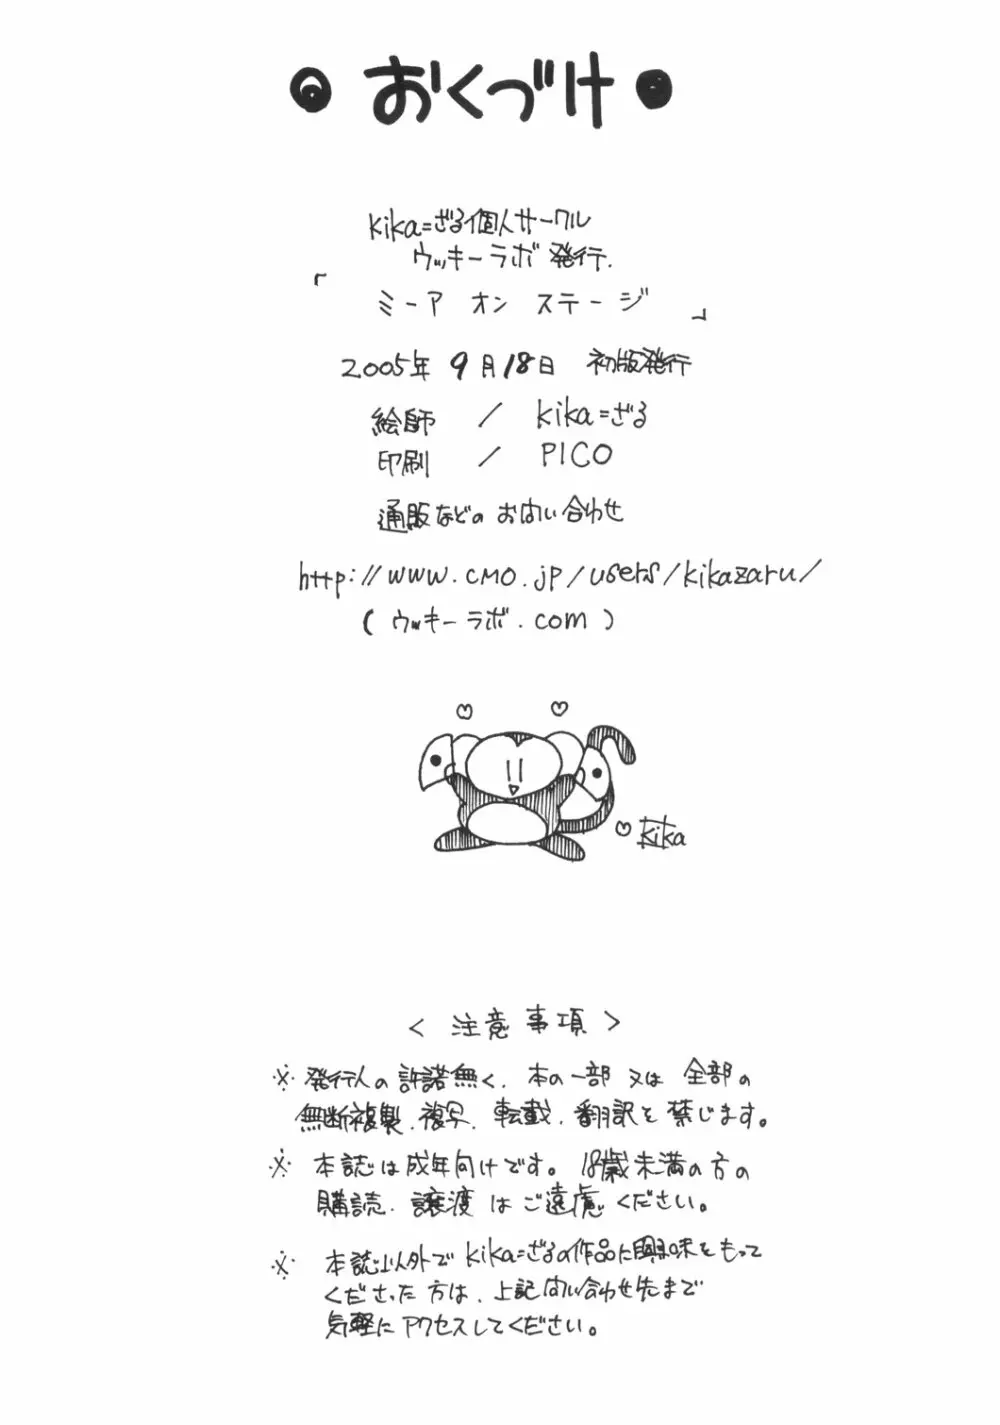 おくづけ
kika=ざる個人サークル
ウッキーラボ 発行.
「ミーア オン ステージ」
2005年 9月18日 初版発行
絵師 / kika=ざる
印刷 / PICO
通販などの お問い合わせ
http://www.cmo.jp/users/kikazaru/
(ウッキーラボ.com)
kika
<注意事項>
※発行人の許諾無く、本の一部又は全部の
無断複製、複写、転載、翻訳を禁じます。
※本誌は成年向けです。18歳未満の方の
購読、譲渡はご遠慮ください。
※本誌以外でkika=ざるの作品に興味をもって
くださった方は、上記問い合わせ先まで
気軽にアクセスしてください。